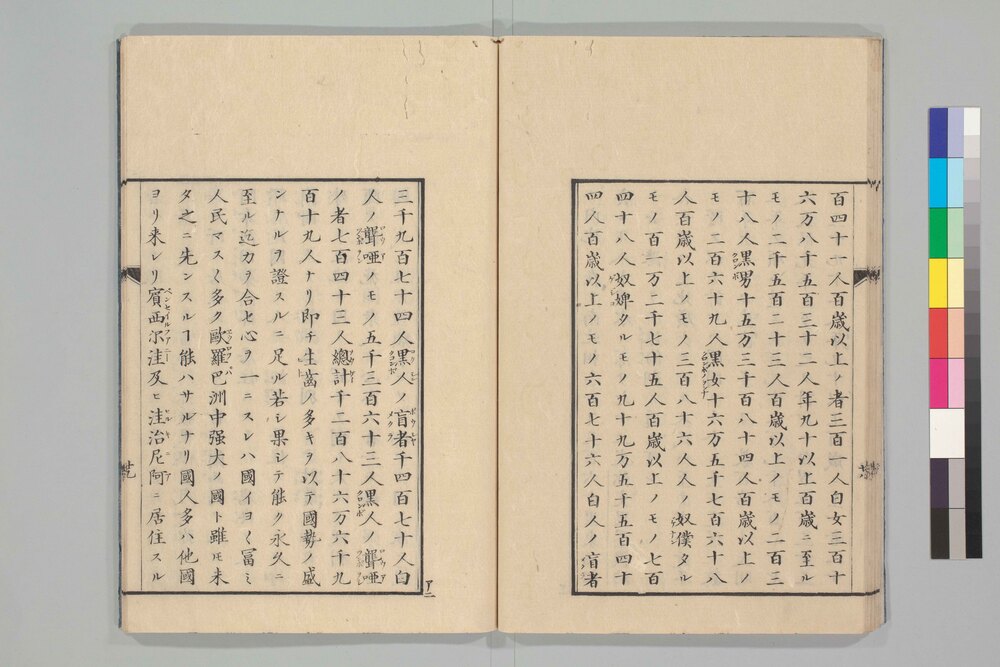 百四十一人百歳以上ノ者三百一人白女三百十
六万八千五百三十二人年九十以上百歳ニ至ル
モノ二千五百二十三人百歳以上ノモノ二百三
十八人黒男十五万三千百八十四人百歳以上ノ
モノ二百六十九人黒女十六万五千七百六十八
人百歳以上ノモノ三百八十六人人ノ奴僕タル
モノ百一万二千七十五人百歳以上ノモノ七百
四十八人奴婢タルモノ九十九万五千五百四十
四人百歳以上ノモノ六百七十六人白人ノ盲者
三千九百七十四人黒人ノ盲者千四百七十人白
人ノ聾唖ノモノ五千三百六十三人黒人ノ聾唖
ノ者七百四十三人總計千二百八十六万六千九
百十九人ナリ即チ生齒ノ多キヲ以テ國勢ノ盛
ンナルヲ證スルニ足ル若シ果シテ能ク永久ニ
至ル迄力ヲ合セ心ヲ一ニスレハ國イヨ〱冨ミ
人民マス〱多ク歐羅巴洲中强大ノ國ト雖モ未
タ之ニ先ンスルヿ能ハサルナリ國人多ハ他國
ヨリ来レリ賓西尔洼及ヒ洼治尼阿ニ居住スル